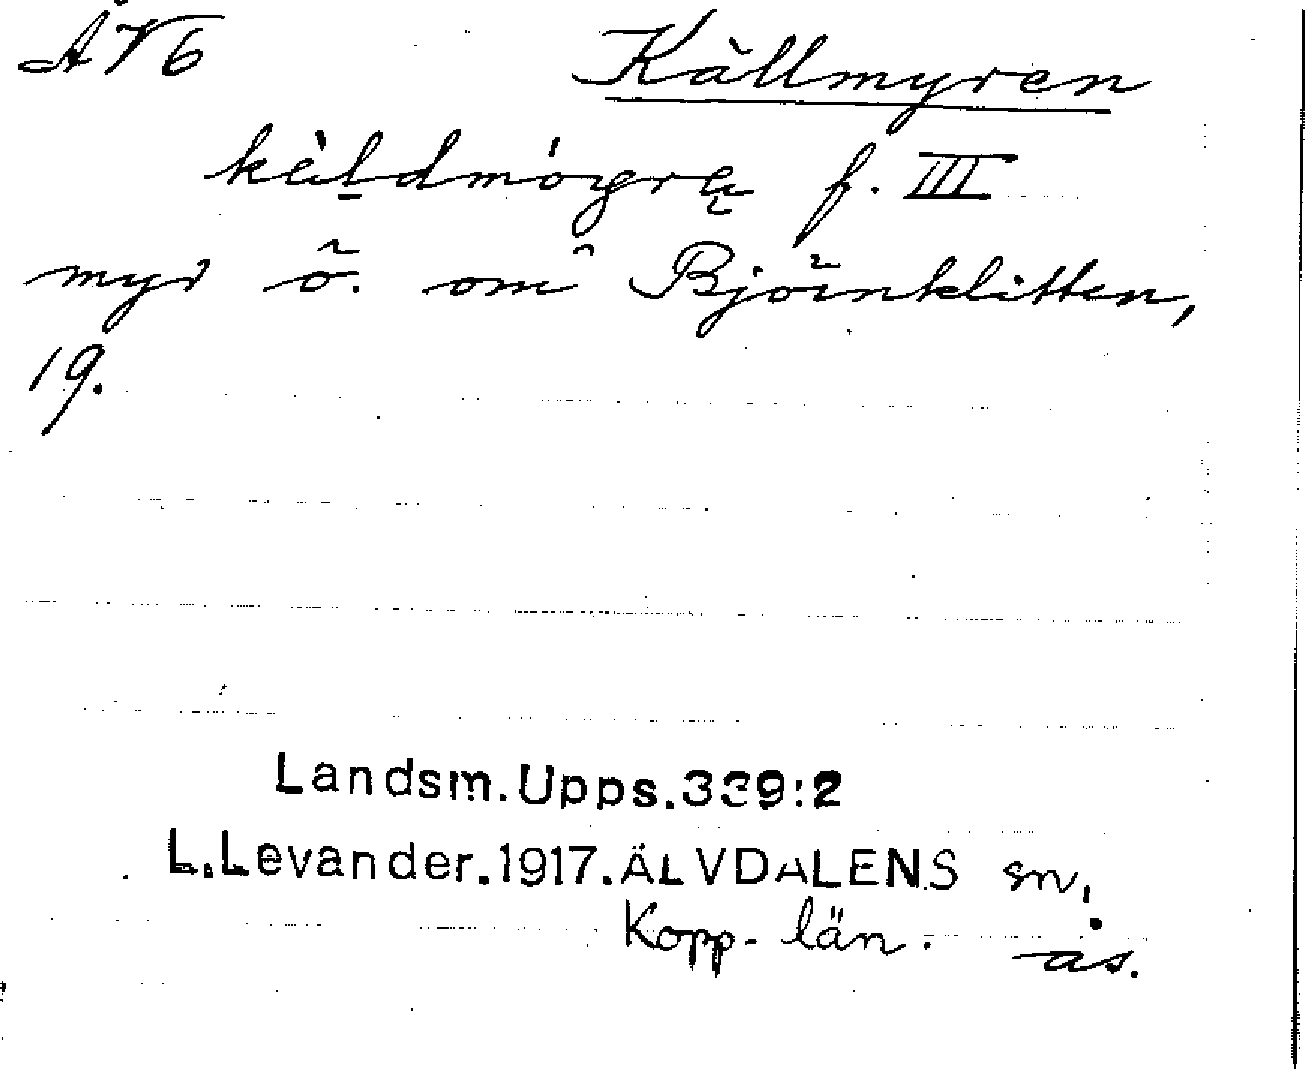 ÅV6 Källmyren
kèldmógrę f. III
myr ö. om Björnklitten,
19.
Landsm.Upps.339:2
L.Levander.1917.ÄLVDALENS sn,
Kopp. län. ås.